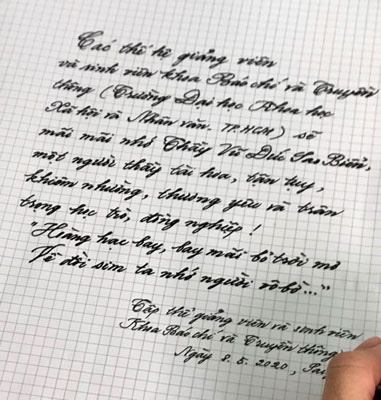 Các thế hệ giảng viên
và sinh viên khoa Báo chí và Truyền
thông (Trường Đại học Khoa học
Xã hội và Nhân văn. TP.HCM) sẽ
mãi mãi nhớ Thầy Vũ Đức Sao Biển,
một người thầy tài hoa, tận tụy,
khiêm nhường, thương yêu và trân
trọng học trò, đồng nghiệp!
"Hoàng hạc bay, bay mãi bỏ trời mơ
Về đồi sim ta nhớ người vô bờ..."
Tập thể giảng viên và sinh viên
Khoa Báo chí và Truyền thông
Ngày 8.5.2020,